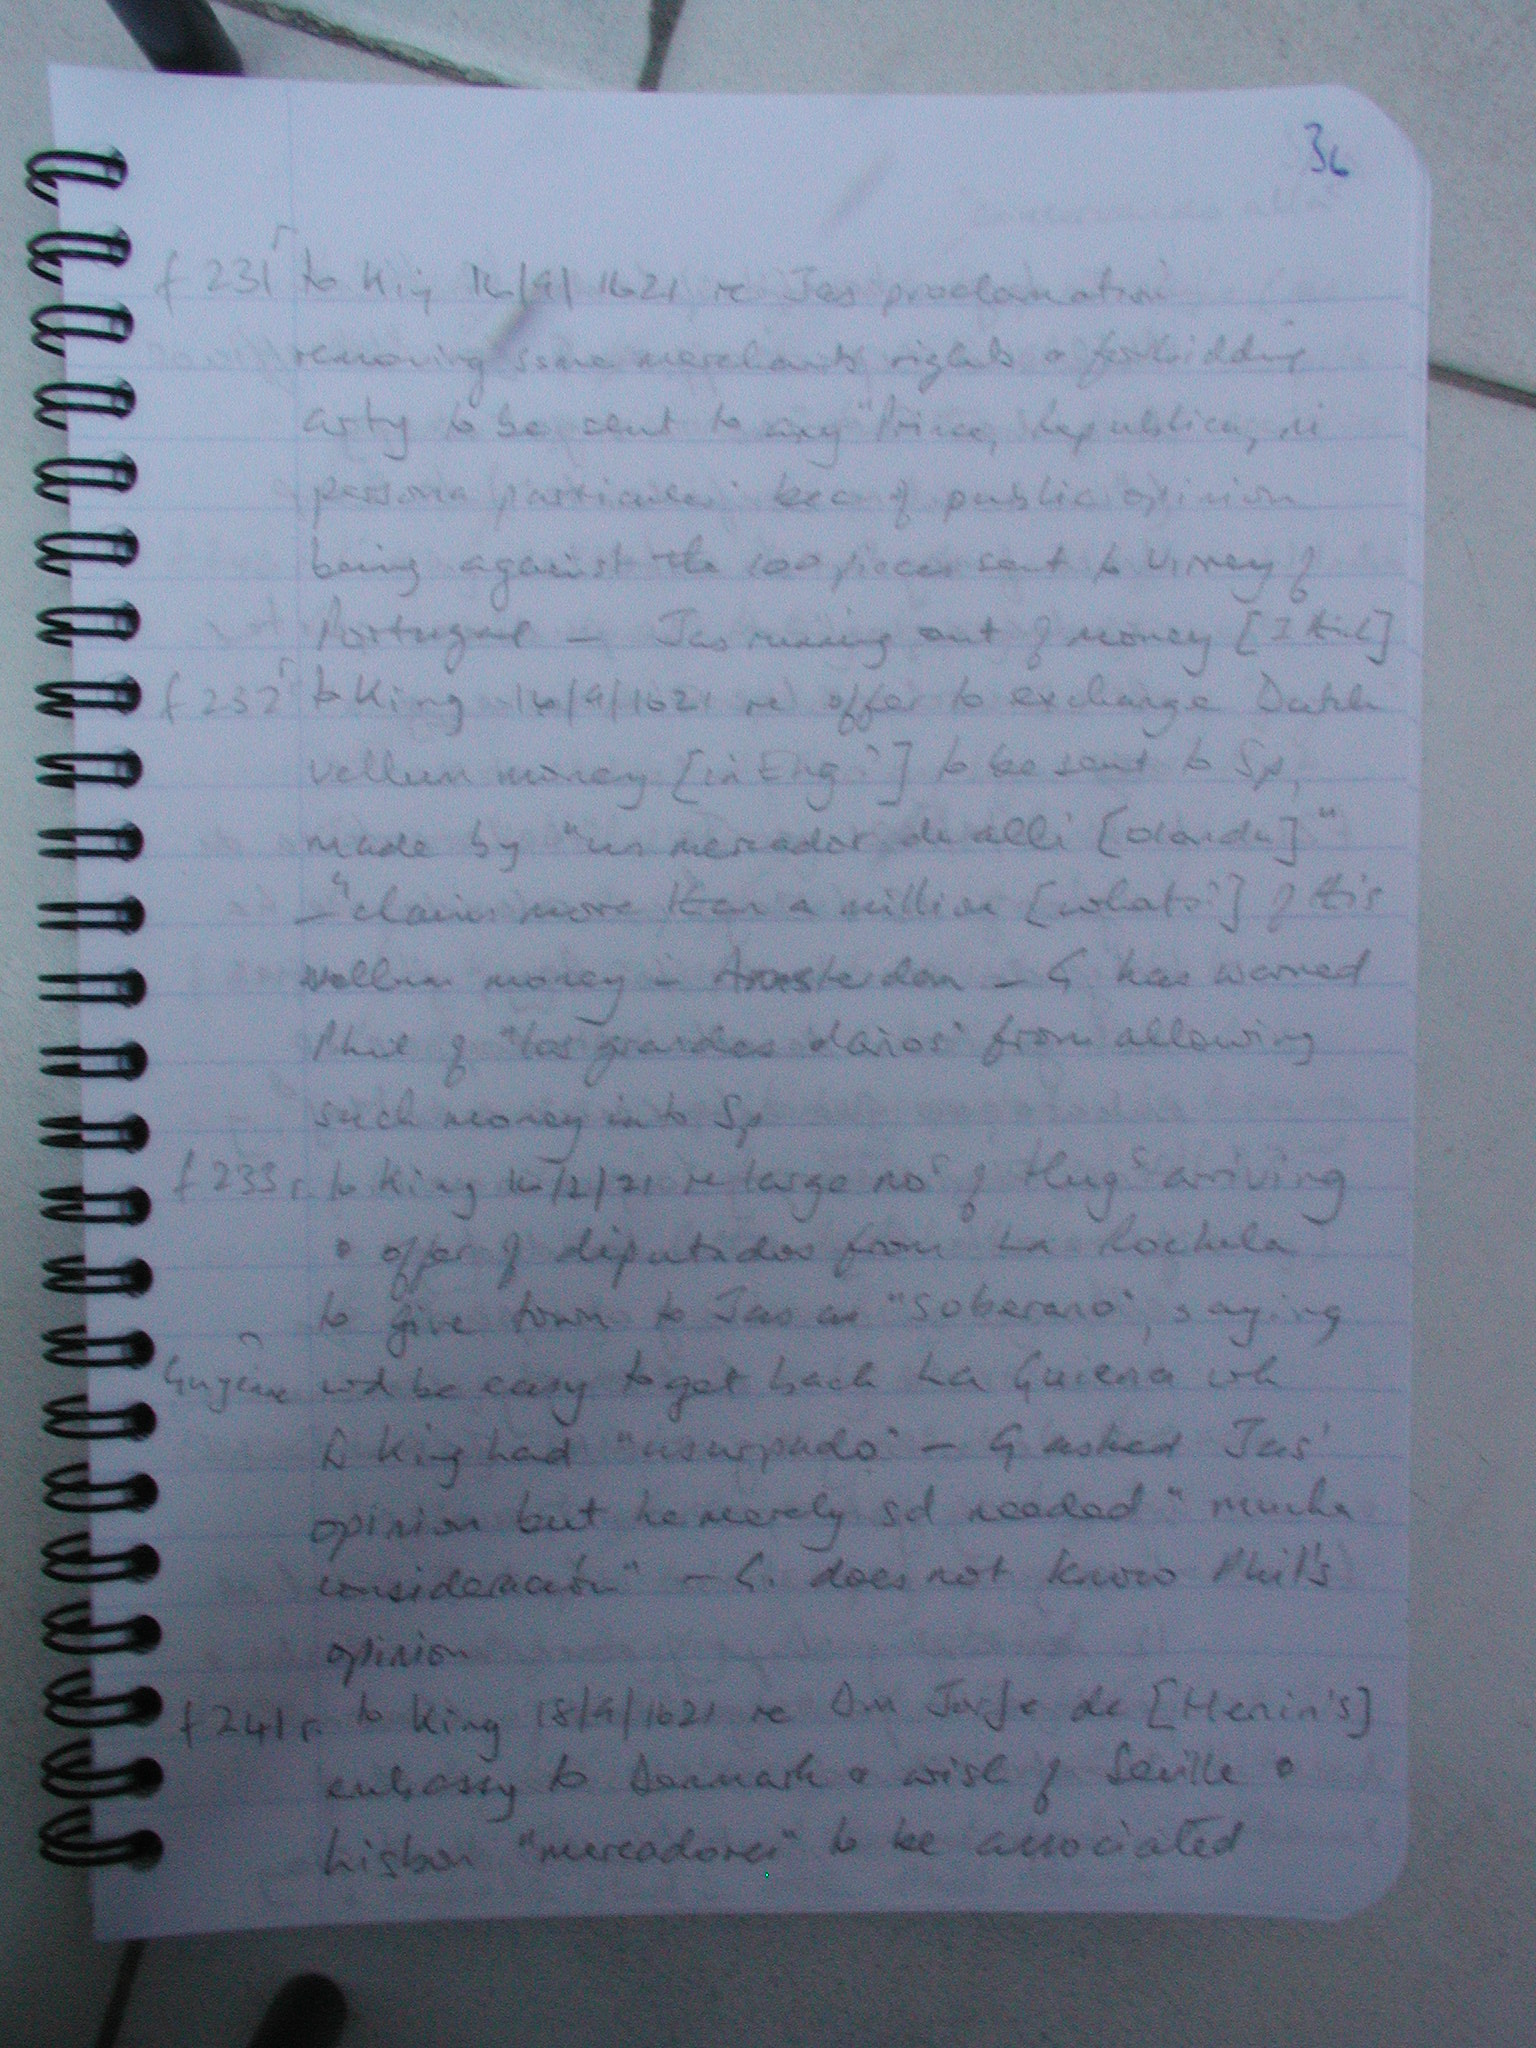 36
f 231r to King 16/9/1621 re Jas proclamation
removing some merchants rights & forbidding
arty to be sent to any "Prince, Republica, ni
persona particular" bec of public opinion
being against the 100 pieces sent to Virrey of
Portugal — Jas running out of money [I think]
f 232r to King 16/9/1621 re offer to exchange Dutch
vellum money [in Eng?] to be sent to Sp,
made by "un mercador de alli [olanda]"
— claims more than a million [whats?] of this
vellum money in Amsterdam — G has warned
Phil of "los grandes daños" from allowing
such money into Sp
f 233r. to King 16/2/21 re large nos of Hugs arriving
& offer of diputados from La Rochela
to give town to Jas as "Soberano", saying
Guyenne wd be easy to get back La Guiena wh
King had "usurpado" — G asked Jas'
opinion but he merely sd needed "mucha
consideración" — G. does not know Phil's
opinion
f 241r. to King 18/9/1621 re Don Jorge de [Henin's]
embassy to Denmark & wish of Seville &
Lisbon "mercadores" to be associated